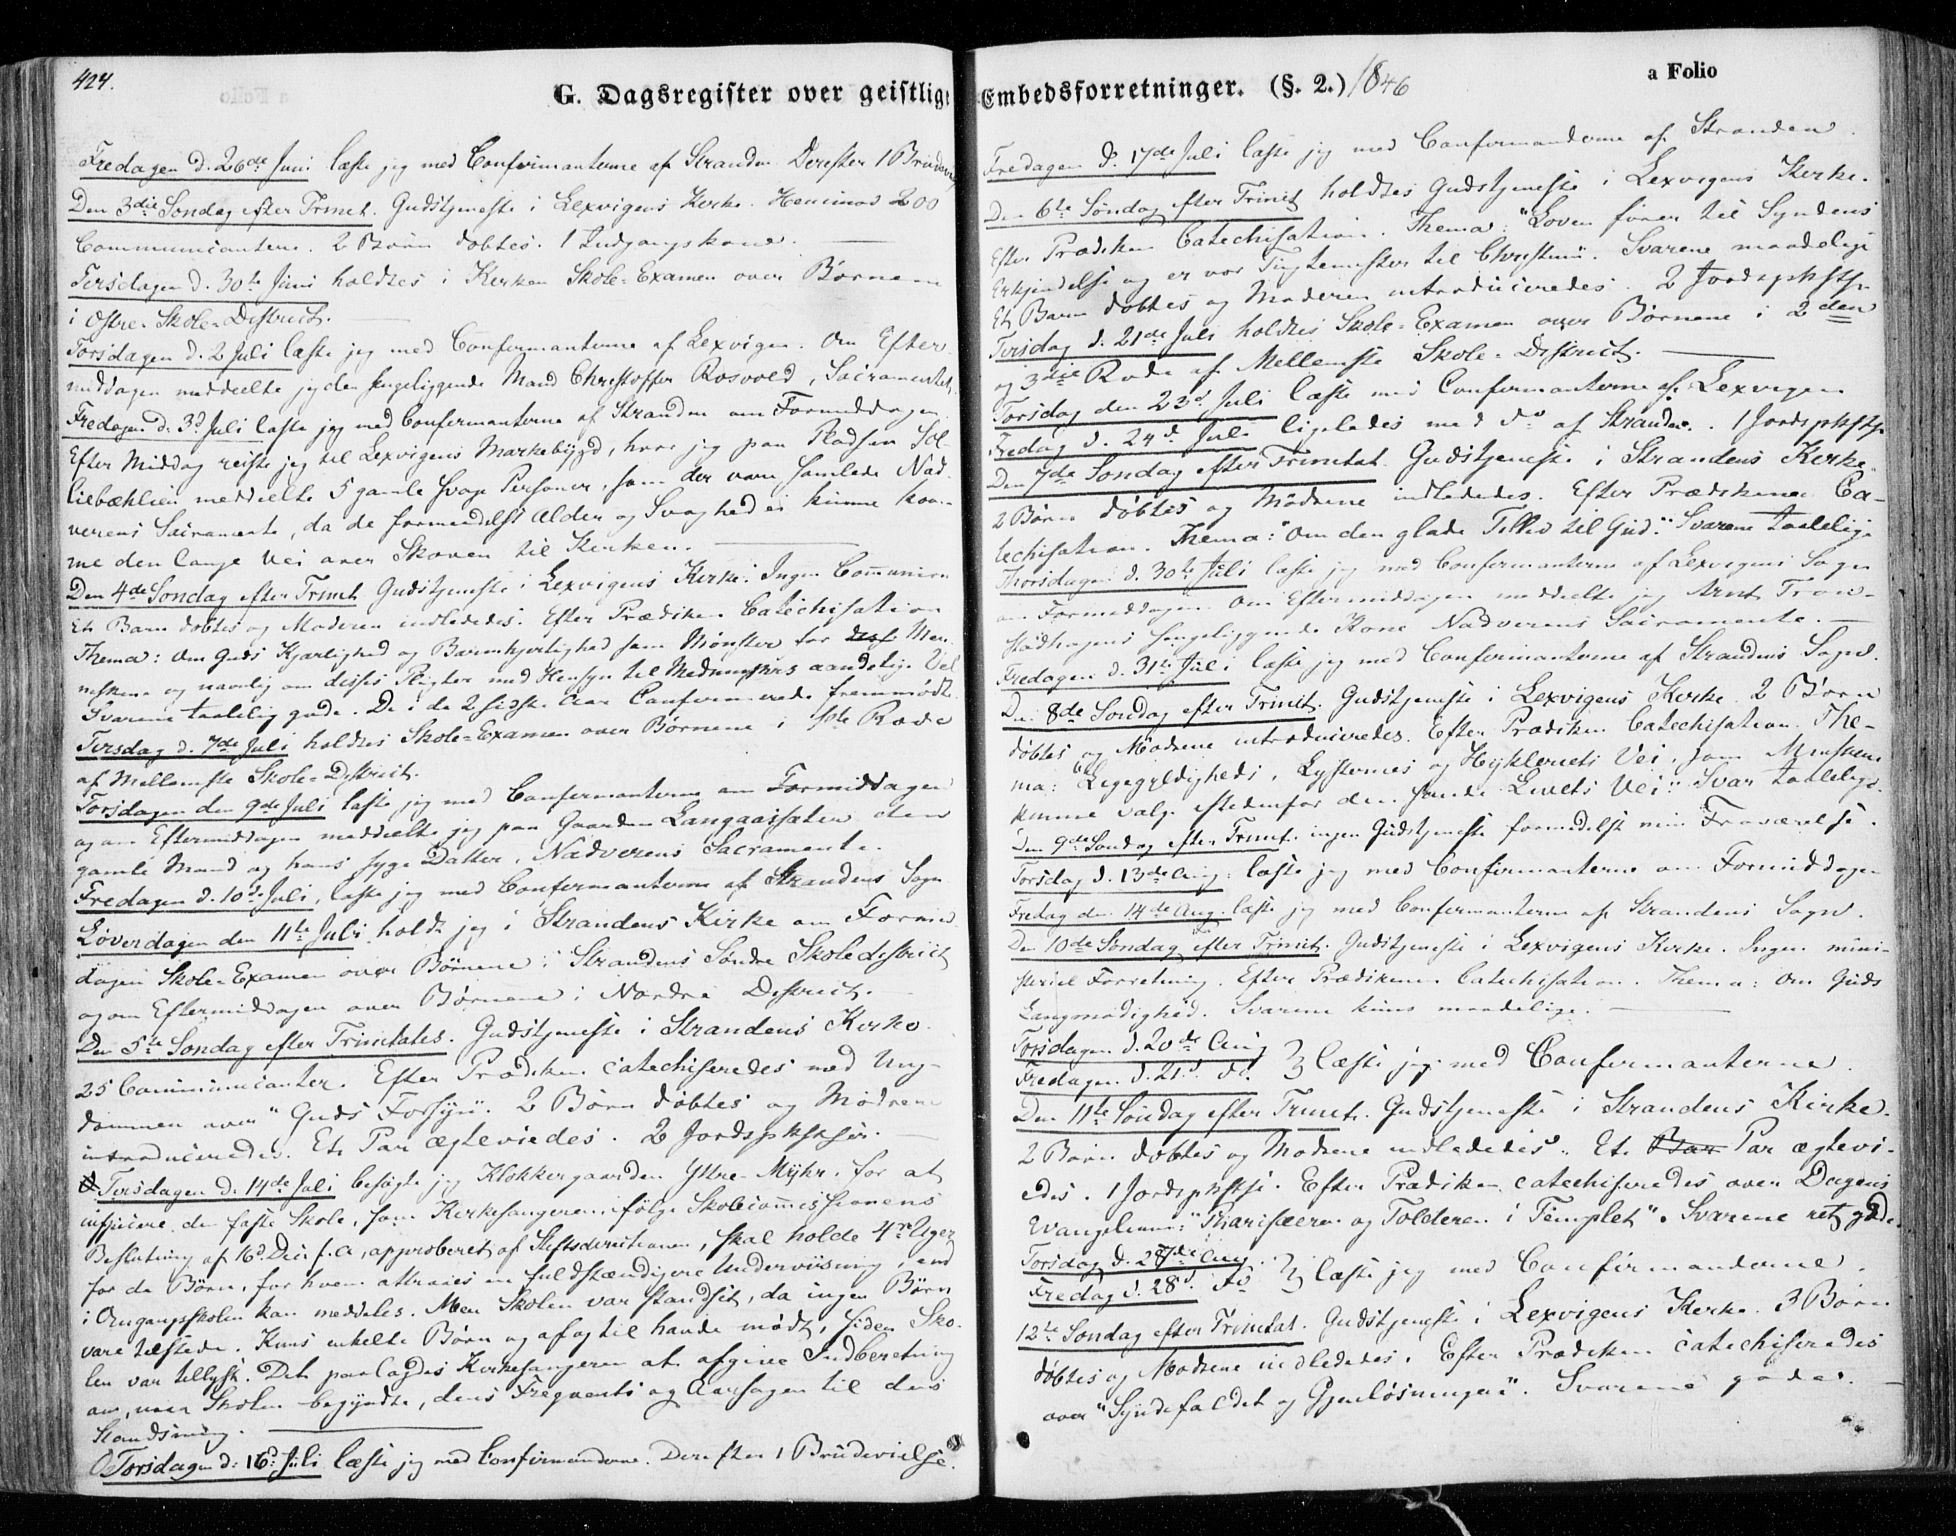 424.
G. Dagsregister over geistlige Embedsforretninger. (§. 2.) 1846
a Folio
Fredagen d. 26de Juni læste jeg med Confirmanterne af Stranden. Derefter 1 Brudevielse
Den 3die Söndag efter Trinit. Gudstjeneste i Lexvigens Kirke. Henimod 200
Communicantere. 2 Börn döbtes. 1 Indgangskone.
Tirsdagen d. 30te Juni holdtes i Kirken Skole-Examen over Børnene
i Østre Skole-District.
Torsdagen d. 2 Juli læste jeg med Confirmanterne af Lexvigen. Om Efter-
middagen meddeelte jeg den sengeliggende Mand Christoffer Rosvold, Sacramentet.
Fredagen d. 3d Juli læste jeg med Confirmanterne af Stranden om Formiddagen.
Efter Middag reiste jeg til Lexvigens Markebygd, hvor jeg paa Pladsen Sol-
liebækliën meddeelte 5 gamle svage Personer, som der vare samlede Nad-
verens Sacramente, da de formedelst Alder og Svaghed ei kunne kom-
me den lange Vei over Skoven til Kirken.
Den 4de Söndag efter Trinit. Gudstjeneste i Lexvigens Kirke. Ingen Communion
Et Barn döbtes og Moderen indlededes. Efter Prædiken Catechisation
Thema: Om Guds Kjærlighed og Barmhjertighed som Mønster for Men-
neskene og navnlig om disses Pligter med Hensyn til Medmenneskers aandelige Vel
Svarene taalelig gode. De i de 2 sidste Aar Confirmerede fremmødte.
Tirsdag d. 7de Juli holdtes Skole-Examen over Børnene i 1ste Rode
af Mellemste Skole-District.
Torsdagen den 9de Juli læste jeg med Confirmanterne om Formiddagen
og om Eftermiddagen meddeelte jeg paa Gaarden Langaasaeter den
gamle Mand og hans syge Datter, Nadverens Sacramente.
Fredagen d. 10de Juli, læste jeg med Confirmanterne af Strandens Sogn
Løverdagen den 11te Juli holdt jeg i Strandens Kirke om Formid-
dagen Skole-Examen over Børnene i Strandens Søndre Skoledistrict
og om Eftermiddagen over Børnene i Nordre District.
Den 5te Söndag efter Trinitates. Gudstjeneste i Strandens Kirke.
25 Communicanter. Efter Prædiken catechiseredes med Ung-
dommen over "Guds Forsyn". 2 Börn döbtes og Mödrene
introduceredes. Et Par ægteviedes. 2 Jordspkstser.
Tirsdagen d. 14de Juli besögte jeg Klokkergaarden Yttre-Myhr, for at
inspicere den faste Skole, som Kirkesangeren ifølge Skolecommissionens
Beslutning af 16d. Dec. f. A., approberet af Stiftsdirectionen, skal holde 4re Uger
for de Börn, for hvem attraaes en fuldstændigere Underviisning, end
i Omgangsskolen kan meddeles. Men Skolen var standset, da ingen Börn
vare tilstede. Kuns enkelte Börn og af og til havde mödt, siden Sko-
len var tillyst. Det paalagdes Kirkesangeren at afgive Indberetning
om, naar Skolen begyndte, dens Freqvents og Aarsagen til dens
Standsning.
Torsdagen d. 16d Juli læste jeg med Confirmanderne. Derefter 1 Brudevielse.
Fredagen d. 17de Juli læste jeg med Confirmanderne af Stranden.
Den 6te Söndag efter Trinit. holdtes Gudstjeneste i Lexvigens Kirke.
Efter Prædiken Catechisation. Thema: "Loven fører til Syndens
Erkjendelse og er vor Tugtemester til Christum". Svarene maadelige
Et Barn döbtes og Moderen introduceredes. 2 Jordspkstse.
Tirsdag d. 21de Juli holdtes Skole-Examen over Børnene i 2den
og 3die Rode af Mellemste Skole-District.
Torsdag den 23d Juli læste med Confirmanterne af Lexvigen
Fredag d. 24d Juli ligeledes med do af Stranden. 1 Jordspkstse
Den 7de Söndag efter Trinitat. Gudstjeneste i Strandens Kirke.
2 Börn döbtes og Mödrene indlededes. Efter Prædikenen Ca-
techisation. Thema: "Om den glade Tillid til Gud." Svarene taalelige
Thorsdagen d. 30te Juli læste jeg med Confirmanterne af Lexvigens Sogn
om Formiddagen. Om Eftermiddagen meddeelte jeg Arnt Tron-
stadhagens sengeliggende Kone Nadverens Sacramente.
Fredagen d. 31te Juli læste jeg med Confirmanterne af Strandens Sogn.
Den 8de Söndag efter Trinit. Gudstjeneste i Lexvigens Kirke. 2 Börn
döbtes og Mödrene introduceredes. Efter Prædiken Catechisation. The-
ma: "Ligegyldigheds, Lysternes og Hykleriets Vei, som Menskene
kunne valge istedenfor den sande Livets Vei". Svar taalelige.
Den 9de Söndag efter Trinit. ingen Gudstjeneste formedelst min Fraværelse.
Torsdag d. 13de Aug. læste jeg med Confirmanterne om Formiddagen
Fredag den 14de Aug. læste jeg med Confirmanterne af Strandens Sogn.
Den 10de Söndag efter Trinit. Gudstjeneste i Lexvigens Kirke. Ingen mini-
steriel Forretning. Efter Prædikenen Catechisation. Thema: Om Guds
Langmodighed. Svarene kuns maadelige.
Torsdagen d. 20de Aug
Fredagen d. 21d. do. } læste jeg med Confirmanterne.
Den 11te Söndag efter Trinit. Gudstjeneste i Strandens Kirke.
2 Børn döbtes og Mödrene indlededes. Et Bar Par ægtevi-
edes. 1 Jordspkstse. Efter Prædiken catechiseredes over Dagens
Evangelium: "Pharisæeren og Tolderen i Templet". Svarene ret gode.
Torsdag d. 27de Aug.
Fredag d. 28d. do } læste jeg med Confirmanderne.
12te Söndag efter Trinitat. Gudstjeneste i Lexvigens Kirke. 3 Børn
döbtes og Mödrene indlededes. Efter Prædiken catechiseredes
over "Syndefaldet og Gjenløsningen". Svarene gode.